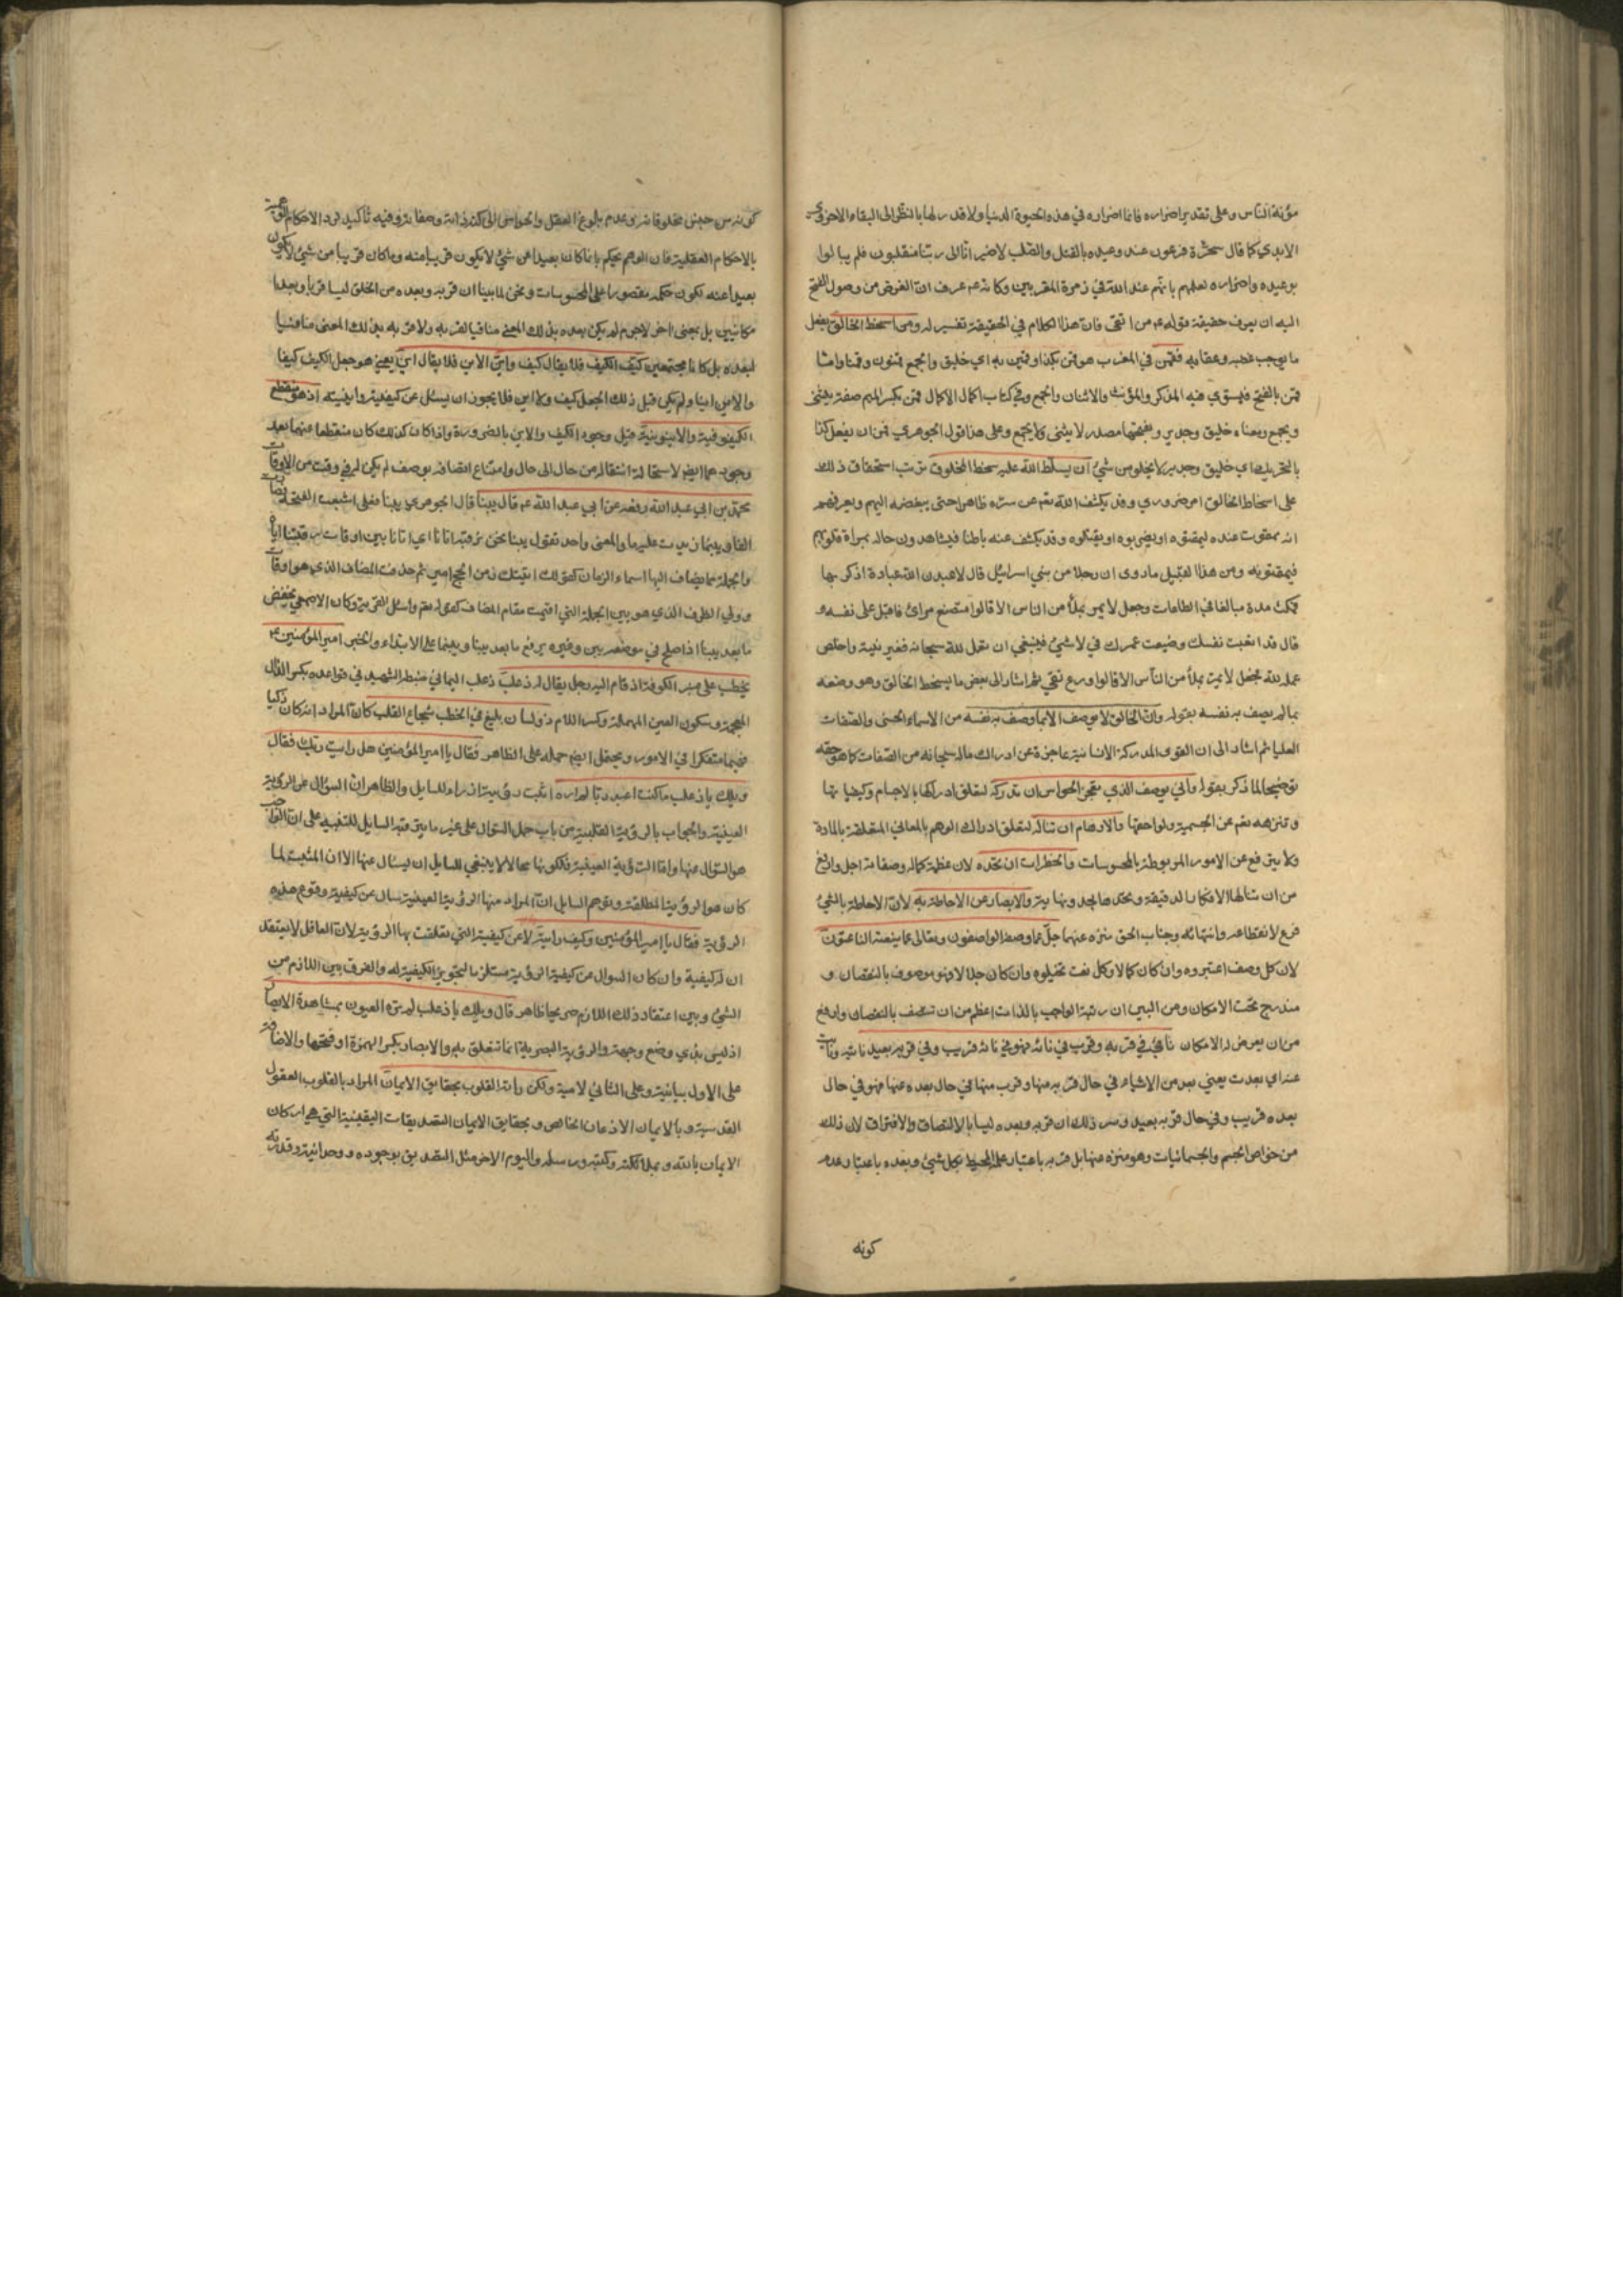 مؤنة الناس وعلى تقدير اضراره فانما اضراره في هذه الحيوة الدنيا ولا قدر لها بالنظر الى البقاء الاخروي
الابدي كما قال سحرة فرعون عند وعيده بالقتل والصلب لا ضير انا الى ربنا منقلبون فلم يبالوا
بوعيده واضراره لعلهم بانهم عند الله في زمرة المقربين وكانه عم عرف ان الغرض من وصول الفتح
اليه ان يعرف حقيقة قوله عم من اتقى فان هذا الكلام في الحقيقة تفسير له ومن اسخط الخالق بفعل
ما يوجب غضبه وعقابه فقمن في المغرب هو قمن بكذا وقمين به اي خليق والجمع قمنون وقمناء واما
قمن بالفتح فيستوي فيه المذكر والمؤنث والاثنان والجمع وفي كتاب اكمال الاكمال قمن بكسر الميم صفة يثنى
ويجمع ومعناه خليق وجدير وبفتحها مصدر لا يثنى ولا يجمع وعلى هذا قول الجوهري قمن ان يفعل كذا
بالتحريك اي خليق وجدير لا يخلو من شيء ان يسلط الله عليه سخط المخلوق ترتب استحقاق ذلك
على اسخاط الخالق امر ضروري وقد يكشف الله تعم عن سره ظاهرا حتى يبغضه اليهم ويعرفهم
انه ممقوت عنده ليمقتوه او يضربوه او يقتلوه وقد يكشف عنه باطنا فيشاهدون حاله بمرآة قلوبهم
فيمقتونه ومن هذا القبيل ما روى ان رجلا من بني اسرائيل قال لاعبدن الله عبادة اذكر بها
فمكث مدة مبالغا في الطاعات وجعل لا يمر بملأ من الناس الا قالوا متصنع مرائ فاقبل على نفسه و
قال قد اتعبت نفسك وضيعت عمرك في لا شيء فينبغي ان تعمل لله سبحانه فغير نيته واخلص
عمله لله فجعل لا يمر بملأ من الناس الا قالوا ورع تقي ثم اشار الى بعض ما يسخط الخالق وهو وصفه
بما لم يصف به نفسه بقوله وان الخالق لا يوصف الا بما وصف به نفسه من الاسماء الحسنى والصفات
العليا ثم اشار الى ان القوى المدركة الانسانية عاجزة عن ادراك ماله سبحانه من الصفات كما هو حقه
توضيحا لما ذكر بقوله وانى يوصف الذي تعجز الحواس ان تدركه لتعلق ادراكها بالاجسام وكيفياتها
وتنزهه تعم عن الجسمية ولواحقها والاوهام ان تناله لتعلق ادراك الوهم بالمعاني المتعلقة بالمادة
ولا يترفع عن الامور المربوطة بالمحسوسات والخطرات ان تحده لان عظمة كماله وصفاته اجل وارفع
من ان تنالها الافكار الدقيقة وتحدها بحد ونهاية والابصار عن الاحاطة به لان الاحاطة بالشيء
فرع لانقطاعه وانتهائه وجناب الحق منزه عنهما جل عما وصفه الواصفون وتعالى عما ينعته الناعتون
لان كل وصف اعتبروه وان كان كمالا وكل نعت تخيلوه وان كان جلالا فهو موصوف بالنقصان و
مندرج تحت الامكان ومن البين ان رتبة الواجب بالذات اعظم من ان تتصف بالنقصان وارفع
من ان يعرض له الامكان نأى في قربه وقرب في نأيه فهو في نأيه قريب وفي قربه بعيد نأيته ونأيت
عنه اي بعدت يعني بعد من الاشياء في حال قربه منها وقرب منها في حال بعده عنها فهو في حال
بعده قريب وفي حال قربه بعيد وسر ذلك ان قربه وبعده ليسا بالالتصاق والافتراق لان ذلك
من خواص الجسم والجسمانيات وهو منزه عنها بل قربه باعتبار علمه المحيط بكل شيء وبعده باعتبار عدم
كونه
كونه من جنس مخلوقاته وعدم بلوغ العقل والحواس الى كنه ذاته وصفاته وفيه تأكيد لرد الاحكام الوهمية
بالاحكام العقلية فان الوهم يحكم بان ما كان بعيدا عن شيء لا يكون قريبا منه وما كان قريبا من شيء لا يكون
بعيدا عنه لكون حكمه مقصورا على المحسوسات ونحن لما بينا ان قربه وبعده من الخلق ليسا قربا وبعدا
مكانيين بل بمعنى اخر لا جرم لم يكن بعده بذلك المعنى منافيا لقربه ولا قربه بذلك المعنى منافيا
لبعده بل كانا مجتمعين كيف الكيف فلا يقال كيف واين الاين فلا يقال اين يعني هو جعل الكيف كيفا
والاين اينا ولم يكن قبل ذلك الجعل كيف ولا اين فلا يجوز ان يسئل عن كيفيته واينيته اذ هو منقطع
الكيفوفية والاينونية قبل وجود الكيف والاين بالضرورة واذا كان كذلك كان منقطعا عنهما بعد
وجودهما ايضا لاستحالة انتقاله من حال الى حال وامتناع اتصافه بوصف لم يكن له في وقت من الاوقات
محمد بن ابي عبد الله رفعه عن ابي عبد الله عم قال بينا قال الجوهري بينا فعلى اشبعت الفتحة فصارت
الفا وبينما زيدت عليه ما والمعنى واحد تقول بينا نحن نرقبه اتانا اي اتانا بين اوقات رقبتنا اياه
والجملة مما يضاف اليها اسماء الزمان كقولك اتيتك زمن الحجاج امير ثم حذف المضاف الذي هو اوقات
وولي الظرف الذي هو بين الجملة التي اقيمت مقام المضاف كقوله تعم واسئل القرية وكان الاصمعي يخفض
ما بعد بينا اذا صلح في موضعه بين وغيره يرفع ما بعد بينا وبينما على الابتداء والخبر امير المؤمنين عم
يخطب على منبر الكوفة اذ قام اليه رجل يقال له ذعلب ذعلب اليماني ضبطه الشهيد في قواعده بكسر الذال
المعجمة وسكون العين المهملة وكسر اللام ذو لسان بليغ في الخطب شجاع القلب كان المراد انه كان ذكيا
فهيما متفكرا في الامور ويحتمل ايضا حمله على الظاهر فقال يا امير المؤمنين هل رأيت ربك فقال
ويلك يا ذعلب ما كنت اعبد ربا لم اره اثبت رؤيته اذ راه للسايل والظاهر ان السؤال عن الرؤية
العينية والجواب بالرؤية القلبية من باب حمل السؤال على غير ما يترقبه السايل للتنبيه على ان الواجب
هو السؤال عنها واما الرؤية العينية فلكونها محالا لا ينبغي للسايل ان يسأل عنها الا ان المثبت لما
كان هو الرؤية المطلقة وتوهم السايل ان المراد منها الرؤية العينية سال عن كيفية وقوع هذه
الرؤية فقال يا امير المؤمنين وكيف رأيته لا عن كيفيته التي تعلقت بها الرؤية لان العاقل لا يعتقد
ان له كيفية وان كان السوال عن كيفية الرؤية مستلزما لتجويز الكيفية له والفرق بين اللازم من
الشيء وبين اعتقاد ذلك اللازم صريحا ظاهر قال ويلك يا ذعلب لم تره العيون بمشاهدة الابصار
اذ ليس بذي وضع وجهة والرؤية البصرية انما تتعلق به والابصار بكسر الهمزة او فتحها والاضافة
على الاول بيانية وعلى الثاني لامية ولكن رأته القلوب بحقايق الايمان المراد بالقلوب العقول
القدسية وبالايمان الاذعان الخالص وبحقايق الايمان التصديقات اليقينية التي هي اركان
الايمان بالله وبملائكته وكتبه ورسله واليوم الاخر مثل التصديق بوجوده ووحدانيته وقدرته